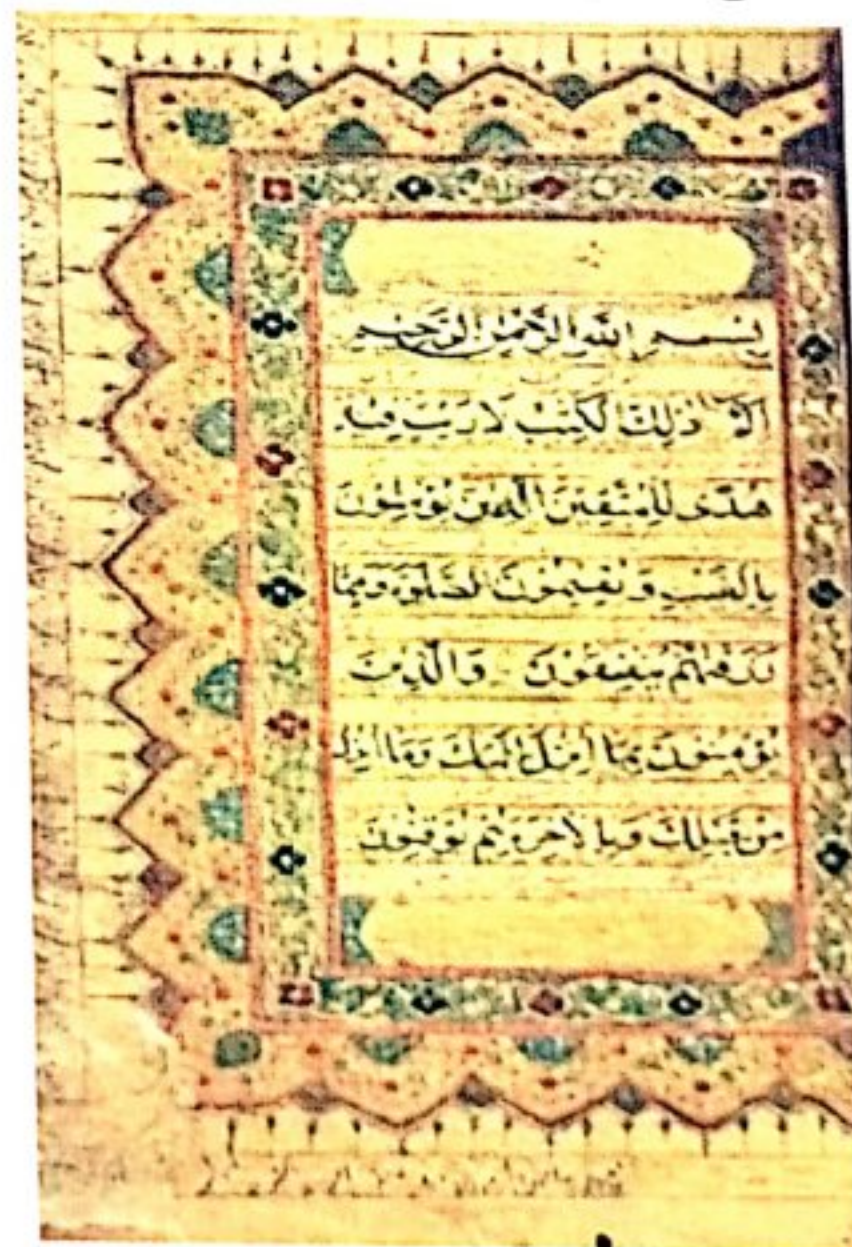 بِسْمِ اللّٰهِ الرَّحْمٰنِ الرَّحِيْمِ
الٓمٓ ذٰلِكَ الْكِتٰبُ لَا رَيْبَ فِيْهِ
هُدًى لِلْمُتَّقِيْنَ الَّذِيْنَ يُؤْمِنُوْنَ
بِالْغَيْبِ وَيُقِيْمُوْنَ الصَّلٰوةَ وَمِمَّا
رَزَقْنٰهُمْ يُنْفِقُوْنَ وَالَّذِيْنَ
يُؤْمِنُوْنَ بِمَا اُنْزِلَ اِلَيْكَ وَمَا اُنْزِلَ
مِنْ قَبْلِكَ وَبِالْاٰخِرَةِ هُمْ يُوْقِنُوْنَ